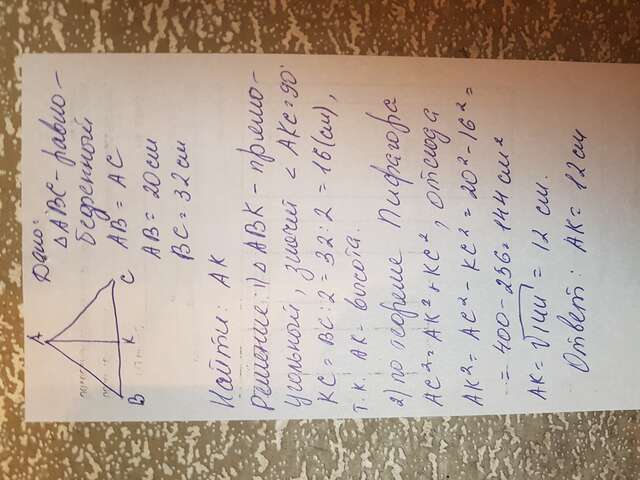 Дано:
△ABC-равно-
бедренный
AB = AC
AB = 20 см
BC = 32 см
A
B
K
C
Найти: AK
Решение: 1) △ ABK - прямо-
угольный, значит < AKC = 90°
KC = BC : 2 = 32 : 2 = 16 (см),
т.к. AK - высота.
2) по теореме Пифагора
AC² = AK² + KC², отсюда
AK² = AC² - KC² = 20² - 16² =
= 400 - 256 = 144 см²
AK = √144 = 12 см.
Ответ: AK = 12 см